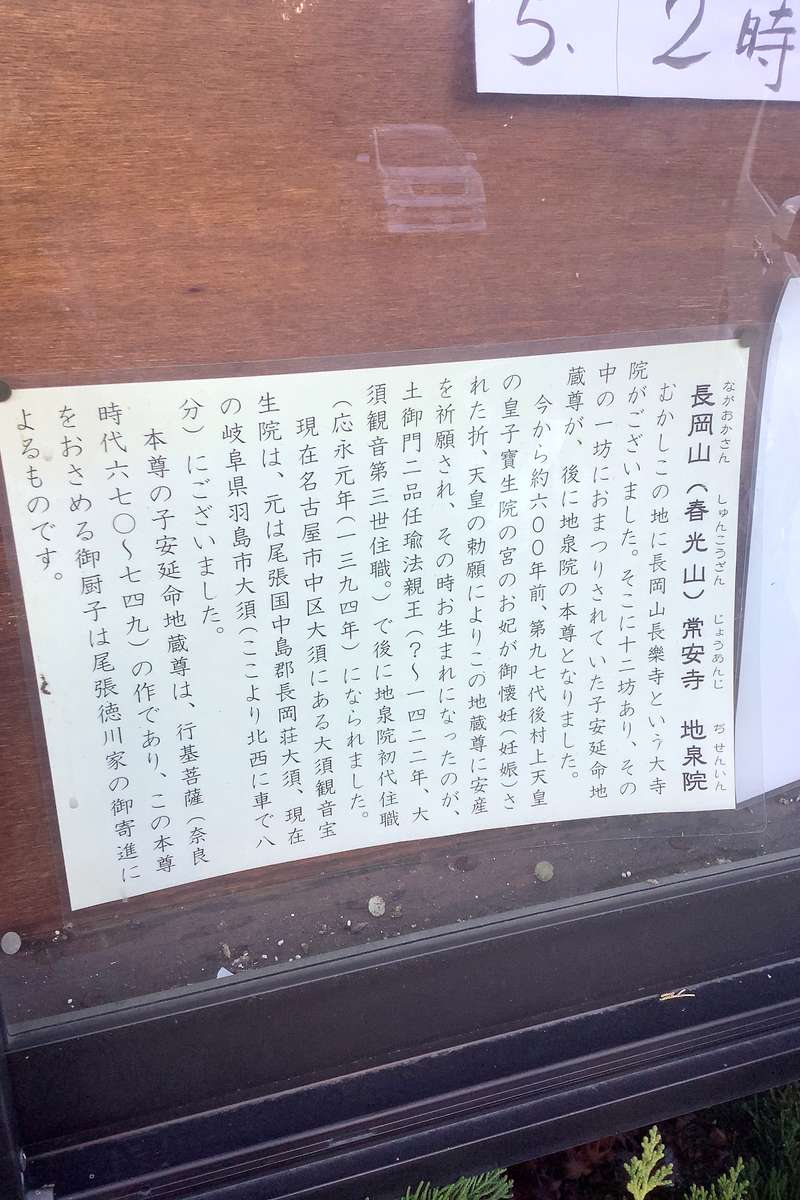 5、
2時
ながおかさん　しゅんこうざん　じょうあんじ　ぢせんいん
長岡山（春光山）常安寺　地泉院
むかしこの地に長岡山長樂寺という大寺
院がございました。そこに十二坊あり、その
中の一坊におまつりされていた子安延命地
蔵尊が、後に地泉院の本尊となりました。
今から約六００年前、第九七代後村上天皇
の皇子寶生院の宮のお妃が御懐妊（妊娠）さ
れた折、天皇の勅願によりこの地蔵尊に安産
を祈願され、その時お生まれになったのが、
土御門二品任瑜法親王（？〜一四二二年、大
須観音第三世住職。）で後に地泉院初代住職
（応永元年（一三九四年）になられました。
現在名古屋市中区大須にある大須観音宝
生院は、元は尾張国中島郡長岡荘大須、現在
の岐阜県羽島市大須（ここより北西に車で八
分）にございました。
本尊の子安延命地蔵尊は、行基菩薩（奈良
時代六七〇〜七四九）の作であり、この本尊
をおさめる御厨子は尾張徳川家の御寄進に
よるものです。